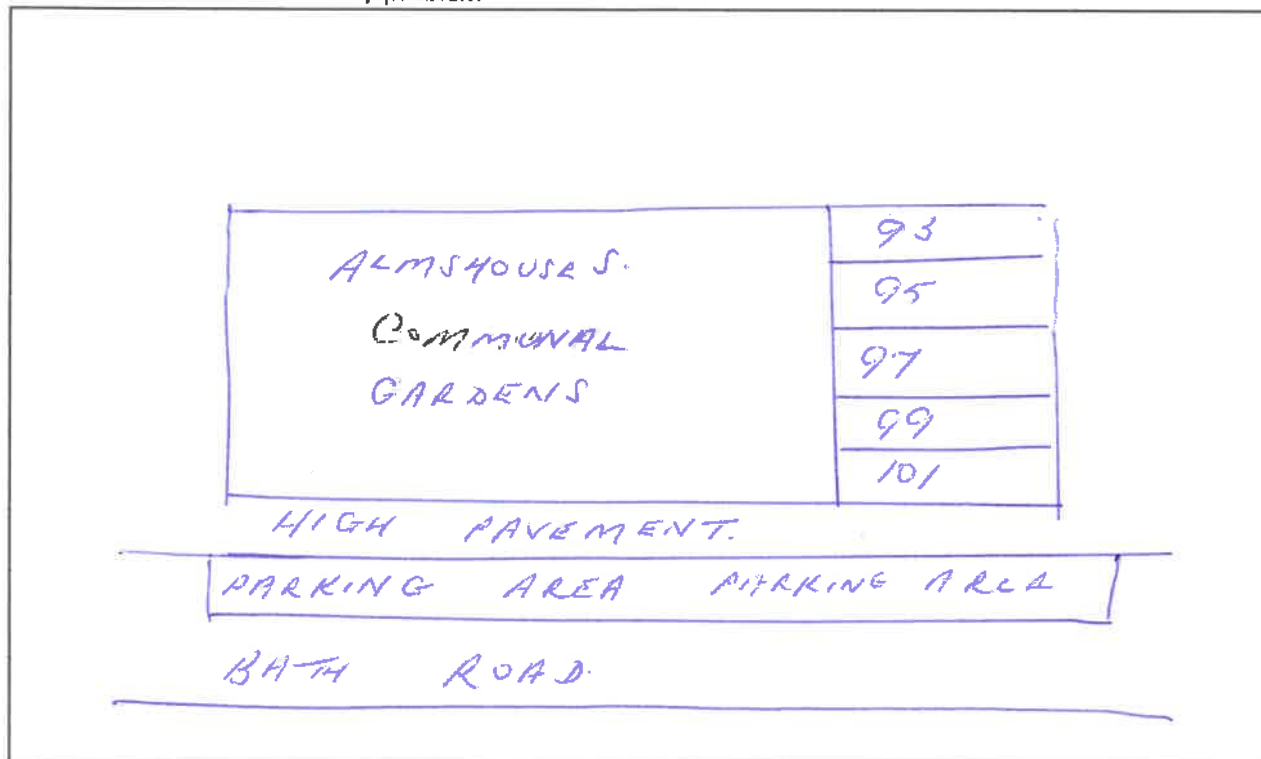 ALMSHOUSES.
93
95
COMMUNAL
97
GARDENS
99
101
HIGH PAVEMENT.
PARKING AREA PARKING AREA
BATH ROAD.